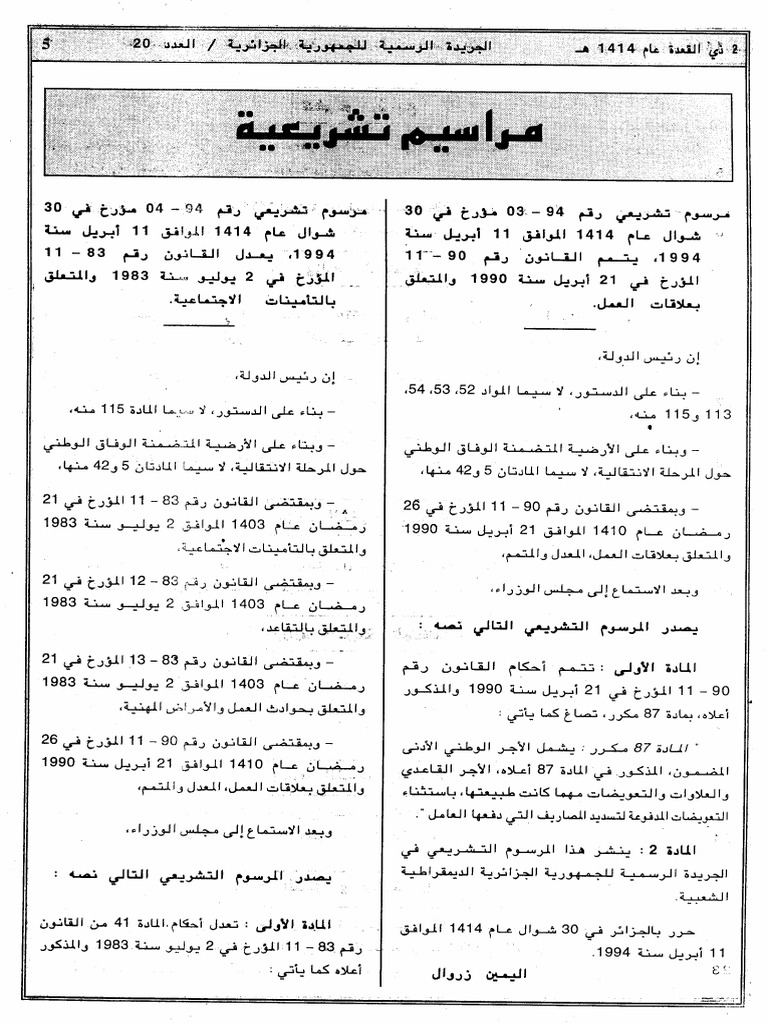 2 ذي القعدة عام 1414 هـ
الجريدة الرسمية للجمهورية الجزائرية / العدد 20
5
مراسيم تشريعية
مرسوم تشريعي رقم 94 – 03 مؤرخ في 30
شوال عام 1414 الموافق 11 أبريل سنة
1994، يتمم القانون رقم 90 – 11
المؤرخ في 21 أبريل سنة 1990 والمتعلق
بعلاقات العمل.
إن رئيس الدولة،
– بناء على الدستور، لا سيما المواد 52، 53، 54،
113 و115 منه،
– وبناء على الأرضية المتضمنة الوفاق الوطني
حول المرحلة الانتقالية، لا سيما المادتان 5 و42 منها،
– وبمقتضى القانون رقم 90 – 11 المؤرخ في 26
رمضان عام 1410 الموافق 21 أبريل سنة 1990
والمتعلق بعلاقات العمل، المعدل والمتمم،
وبعد الاستماع إلى مجلس الوزراء،
يصدر المرسوم التشريعي التالي نصه :
المادة الأولى : تتمم أحكام القانون رقم
90 – 11 المؤرخ في 21 أبريل سنة 1990 والمذكور
أعلاه، بمادة 87 مكرر، تصاغ كما يأتي :
" المادة 87 مكرر : يشمل الأجر الوطني الأدنى
المضمون، المذكور في المادة 87 أعلاه، الأجر القاعدي
والعلاوات والتعويضات مهما كانت طبيعتها، باستثناء
التعويضات المدفوعة لتسديد المصاريف التي دفعها العامل ".
المادة 2 : ينشر هذا المرسوم التشريعي في
الجريدة الرسمية للجمهورية الجزائرية الديمقراطية
الشعبية.
حرر بالجزائر في 30 شوال عام 1414 الموافق
11 أبريل سنة 1994.
اليمين زروال
مرسوم تشريعي رقم 94 – 04 مؤرخ في 30
شوال عام 1414 الموافق 11 أبريل سنة
1994، يعدل القانون رقم 83 – 11
المؤرخ في 2 يوليو سنة 1983 والمتعلق
بالتأمينات الاجتماعية.
إن رئيس الدولة،
– بناء على الدستور، لا سيما المادة 115 منه،
– وبناء على الأرضية المتضمنة الوفاق الوطني
حول المرحلة الانتقالية، لا سيما المادتان 5 و42 منها،
– وبمقتضى القانون رقم 83 – 11 المؤرخ في 21
رمضان عام 1403 الموافق 2 يوليو سنة 1983
والمتعلق بالتأمينات الاجتماعية،
– وبمقتضى القانون رقم 83 – 12 المؤرخ في 21
رمضان عام 1403 الموافق 2 يوليو سنة 1983
والمتعلق بالتقاعد،
– وبمقتضى القانون رقم 83 – 13 المؤرخ في 21
رمضان عام 1403 الموافق 2 يوليو سنة 1983
والمتعلق بحوادث العمل والأمراض المهنية،
– وبمقتضى القانون رقم 90 – 11 المؤرخ في 26
رمضان عام 1410 الموافق 21 أبريل سنة 1990
والمتعلق بعلاقات العمل، المعدل والمتمم،
وبعد الاستماع إلى مجلس الوزراء،
يصدر المرسوم التشريعي التالي نصه :
المادة الأولى : تعدل أحكام المادة 41 من القانون
رقم 83 – 11 المؤرخ في 2 يوليو سنة 1983 والمذكور
أعلاه كما يأتي :